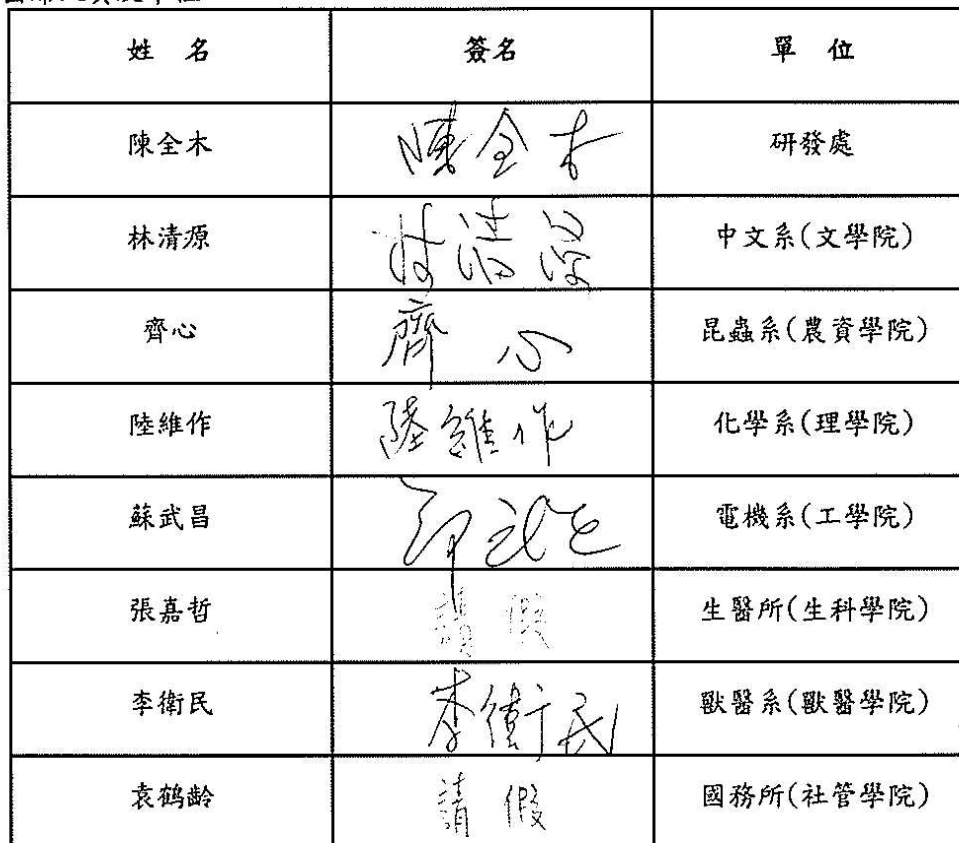 姓 名 簽名 單 位
陳全木 陳全木 研發處
林清源 林清源 中文系(文學院)
齊心 齊心 昆蟲系(農資學院)
陸維作 陸維作 化學系(理學院)
蘇武昌 電機系(工學院)
張嘉哲 請假 生醫所(生科學院)
李衛民 李衛民 獸醫系(獸醫學院)
袁鶴齡 請假 國務所(社管學院)